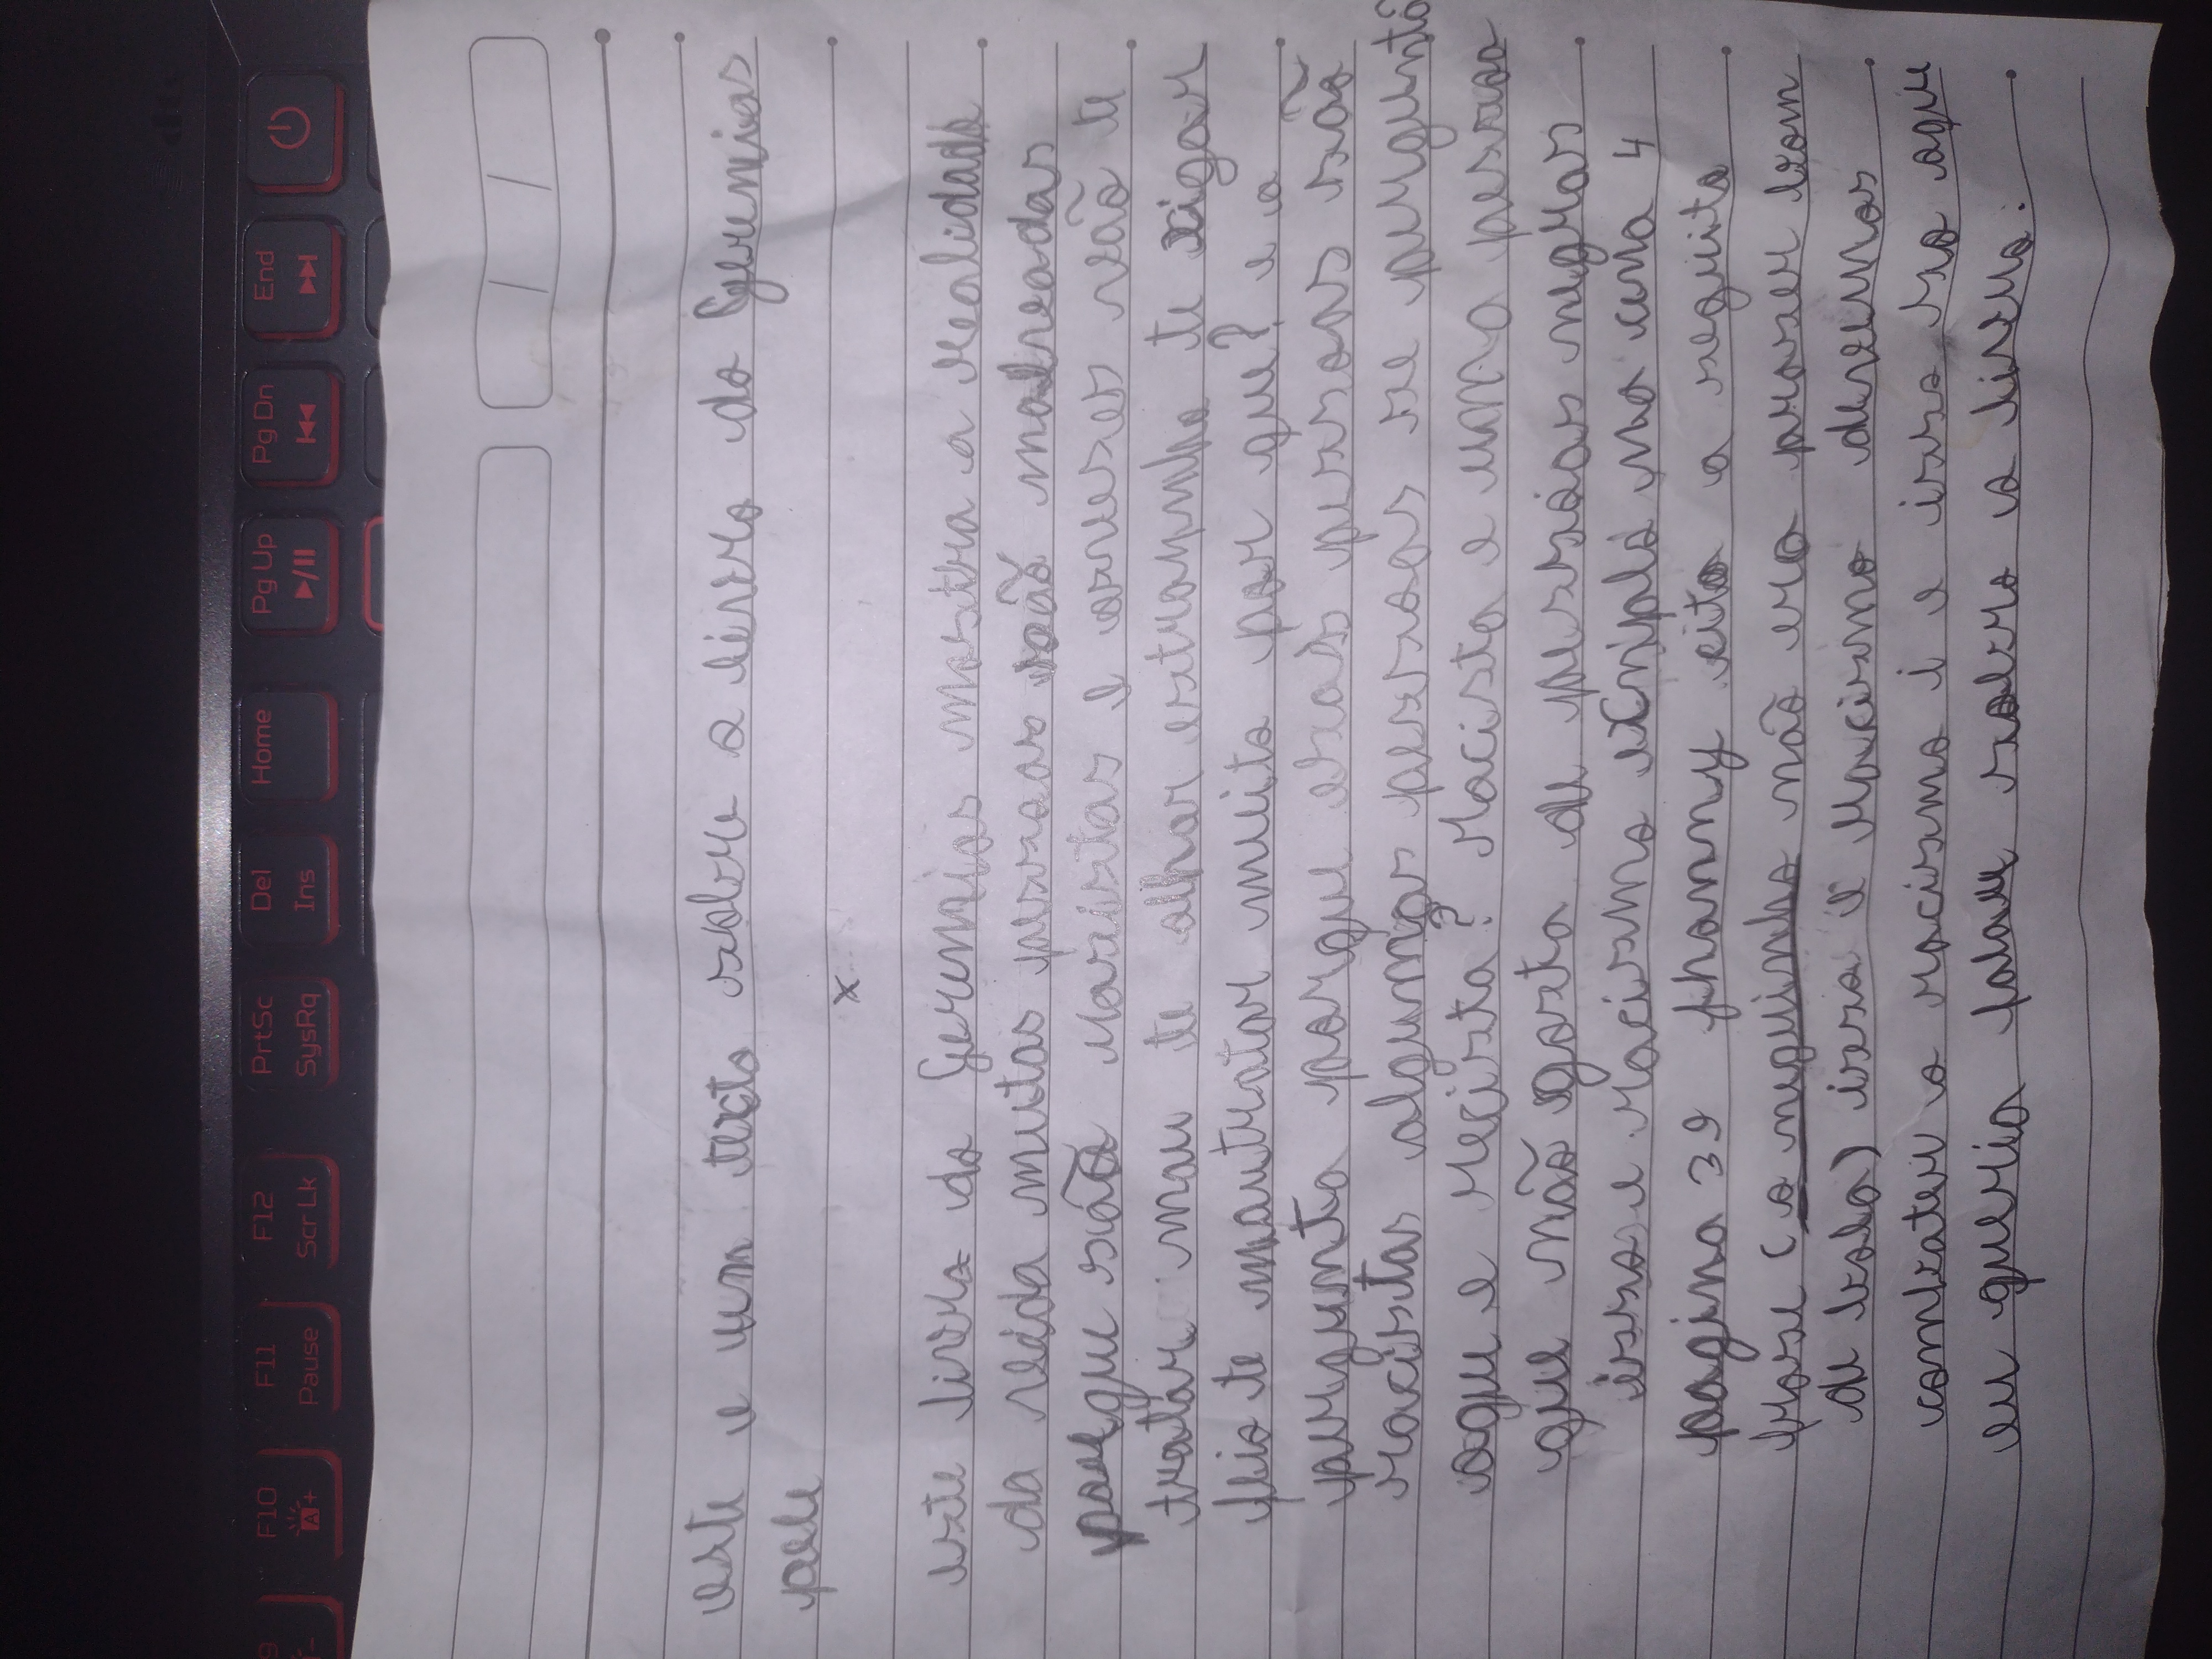 este e um texto sobre o livro do Geremias
pele
x
este livro do Geremias mostra a realidade
da vida muitas pessoas são malvadas
porque são racistas e as vezes vão te
tratar mau te olhar estranho te xigar
feio te mautratar muito por que? e a
pergunta porque esas pessoas são
racistas algumas pessoas se pergunta
oque e racista? racista e uma pessoa
que não gosta de pessoas negras
isso e racismo exemplo na cena 4
pagina 39 phanny a seguito
frase (o neguinho não era pra ser bom
de bola) isso é racismo devemos
combater o racismo i e isso so aqui
eu queria falar sobre o livro.
F9
F10
F11
Pause
F12
Scr Lk
PrtSc
SysRq
Del
Ins
Home
Pg Up
Pg Dn
End